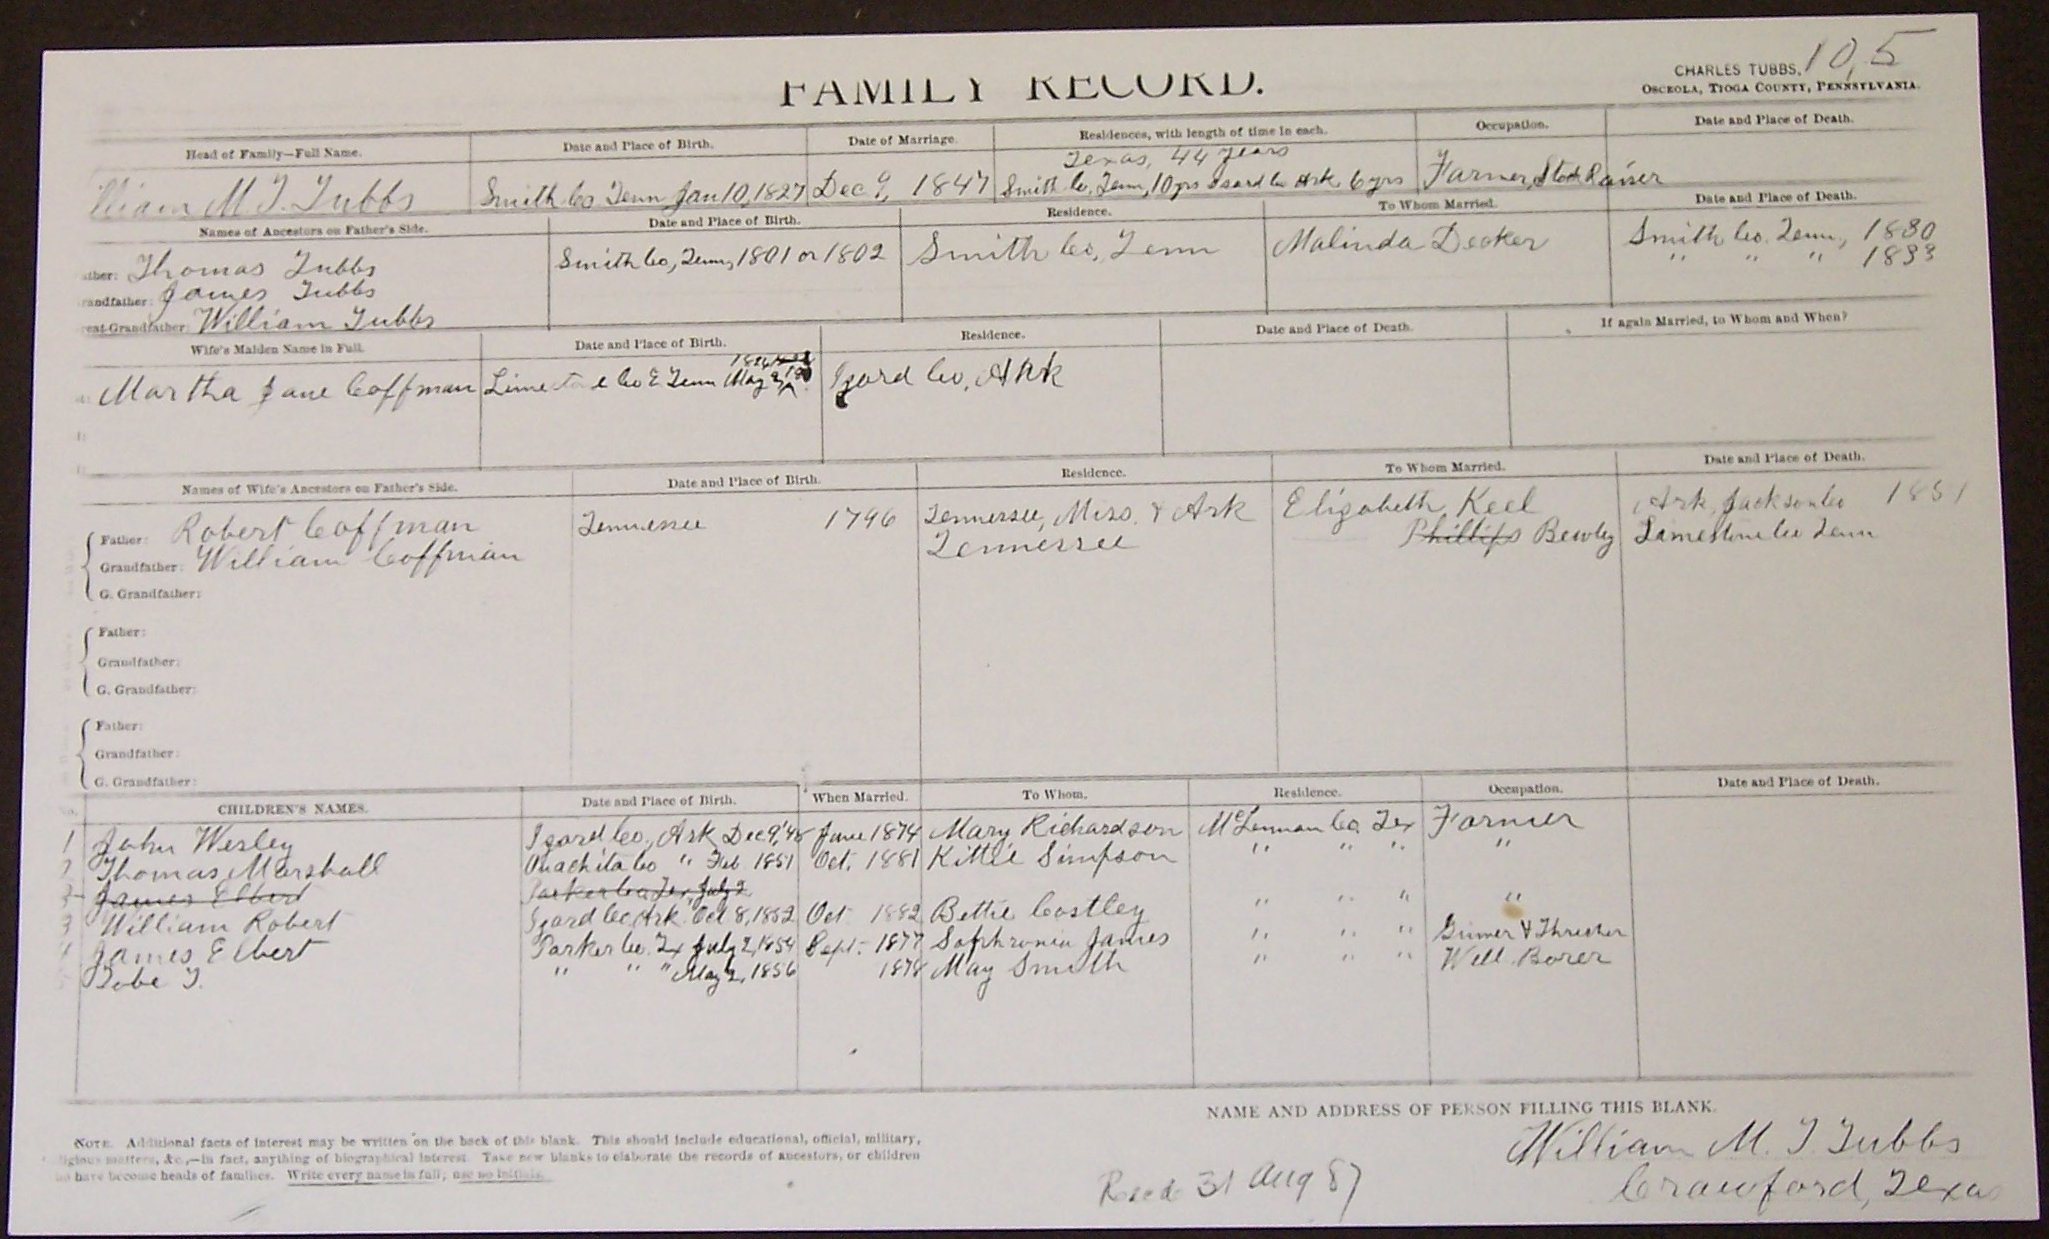 FAMILY RECORD.
10,5
CHARLES TUBBS,
OSCEOLA, TIOGA COUNTY, PENNSYLVANIA.
Head of Family—Full Name. Date and Place of Birth. Date of Marriage. Residences, with length of time in each. Occupation. Date and Place of Death.
Texas, 44 years
lliam M. T. Tubbs Smith Co Tenn Jan 10, 1827 Dec 9, 1847 Smith Co, Tenn, 10 yrs Izard Co Ark 6 yrs Farmer, Stock Raiser
Names of Ancestors on Father's Side. Date and Place of Birth. Residence. To Whom Married. Date and Place of Death.
ther: Thomas Tubbs Smith Co, Tenn, 1801 or 1802 Smith Co, Tenn Malinda Decker Smith Co. Tenn, 1830
randfather: James Tubbs " " " 1833
reat-Grandfather: William Tubbs
Wife's Maiden Name in Full. Date and Place of Birth. Residence. Date and Place of Death. If again Married, to Whom and When?
Martha Jane Coffman Co E Tenn May 2, Izard Co, Ark
Names of Wife's Ancestors on Father's Side. Date and Place of Birth. Residence. To Whom Married. Date and Place of Death.
Father: Robert Coffman Tennessee 1796 Tennessee, Miso. & Ark Elizabeth Keel Ark, Jackson Co 1851
Grandfather: William Coffman Tennessee Phillips Bewley Limestone Co Tenn
G. Grandfather:
Father:
Grandfather:
G. Grandfather:
Father:
Grandfather:
G. Grandfather:
CHILDREN'S NAMES. Date and Place of Birth. When Married. To Whom. Residence. Occupation. Date and Place of Death.
1 John Wesley Izard Co, Ark Dec 9, '48 June 1874 Mary Richardson McLennan Co. Tex Farmer
2 Thomas Marshall Ouachita Co " Feb 1851 Oct. 1881 Kittie Simpson " " " "
3 James Elbert Parker Co, Tex, July 2
3 William Robert Izard Co, Ark. Oct 8, 1852 Oct 1882 Bettie Costley " " " "
4 James Elbert Parker Co. Tx July 2, 1854 Sept. 1877 Sophronia James " " " Ginner & Thresher
Tobe T. " " " May 2, 1856 1878 May Smith " " " Well Borer
NAME AND ADDRESS OF PERSON FILLING THIS BLANK.
William M. T. Tubbs
Crawford, Texas
NOTE. Additional facts of interest may be written on the back of this blank. This should include educational, official, military,
ligious matters, &c.,—in fact, anything of biographical interest. Take new blanks to elaborate the records of ancestors, or children
ho have become heads of families. Write every name in full; use no initials.
Recd 31 Aug 87